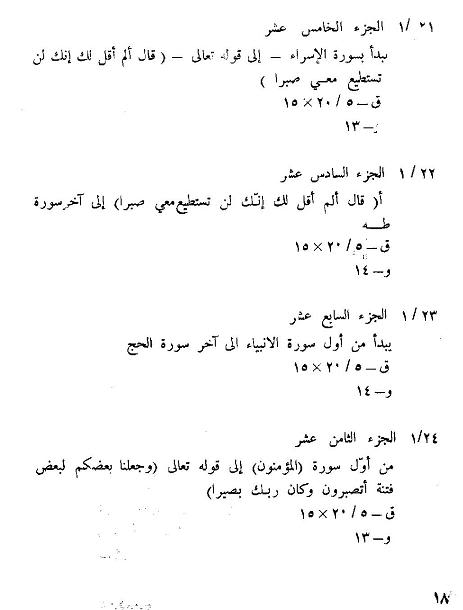 ١/ ٢١ الجزء الخامس عشر
يبدأ بسورة الإسراء – إلى قوله تعالى – ( قال ألم أقل لك إنك لن
تستطيع معي صبرا )
ق – ٥ / ٢٠ × ١٥
و – ١٣
١ / ٢٢ الجزء السادس عشر
أ( قال ألم أقل لك إنّك لن تستطيع معي صبرا) إلى آخر سورة
طه
ق – ٥ / ٢٠ × ١٥
و – ١٤
١ / ٢٣ الجزء السابع عشر
يبدأ من أول سورة الانبياء الى آخر سورة الحج
ق – ٥ / ٢٠ × ١٥
و – ١٤
١/٢٤ الجزء الثامن عشر
من أوّل سورة (المؤمنون) إلى قوله تعالى (وجعلنا بعضكم لبعض
فتنة أتصبرون وكان ربك بصيرا)
ق – ٥ / ٢٠ × ١٥
و – ١٣
١٨